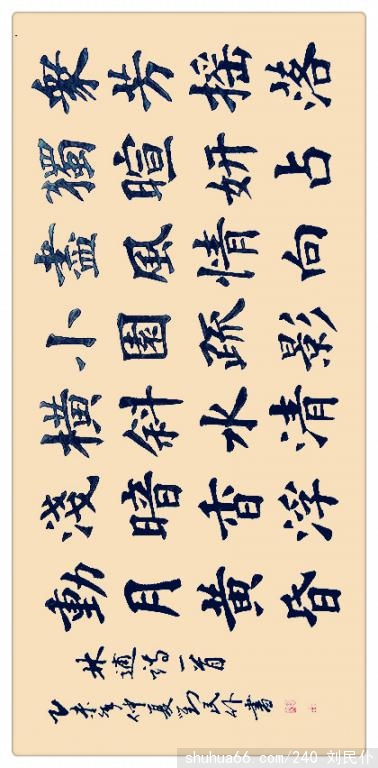 衆芳摇落
獨暄妍占
盡風情向
小園疏影
横斜水清
淺暗香浮
動月黄昏
林逋詩一首
乙未年仲夏劉民仆書
shuhua66.com/240 刘民仆